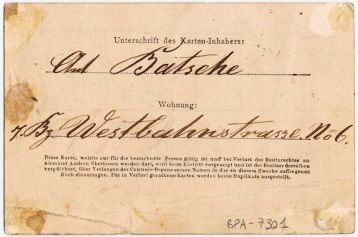 Unterschrift des Karten-Inhabers:
Batsche
Wohnung:
7. Bz. Westbahnstrasse No 6.
Diese Karte, welche nur für die bezeichnete Person giltig ist und bei Verlust des Besitzrechtes an
niemand Andern überlassen werden darf, wird beim Eintritt vorgezeigt und ist der Besitzer derselben
verpflichtet, über Verlangen des Controls-Organs seinen Namen in das zu diesem Zwecke aufliegende
Buch einzutragen. Für in Verlust gerathene Karten werden keine Duplikate ausgestellt.
GPA-7301